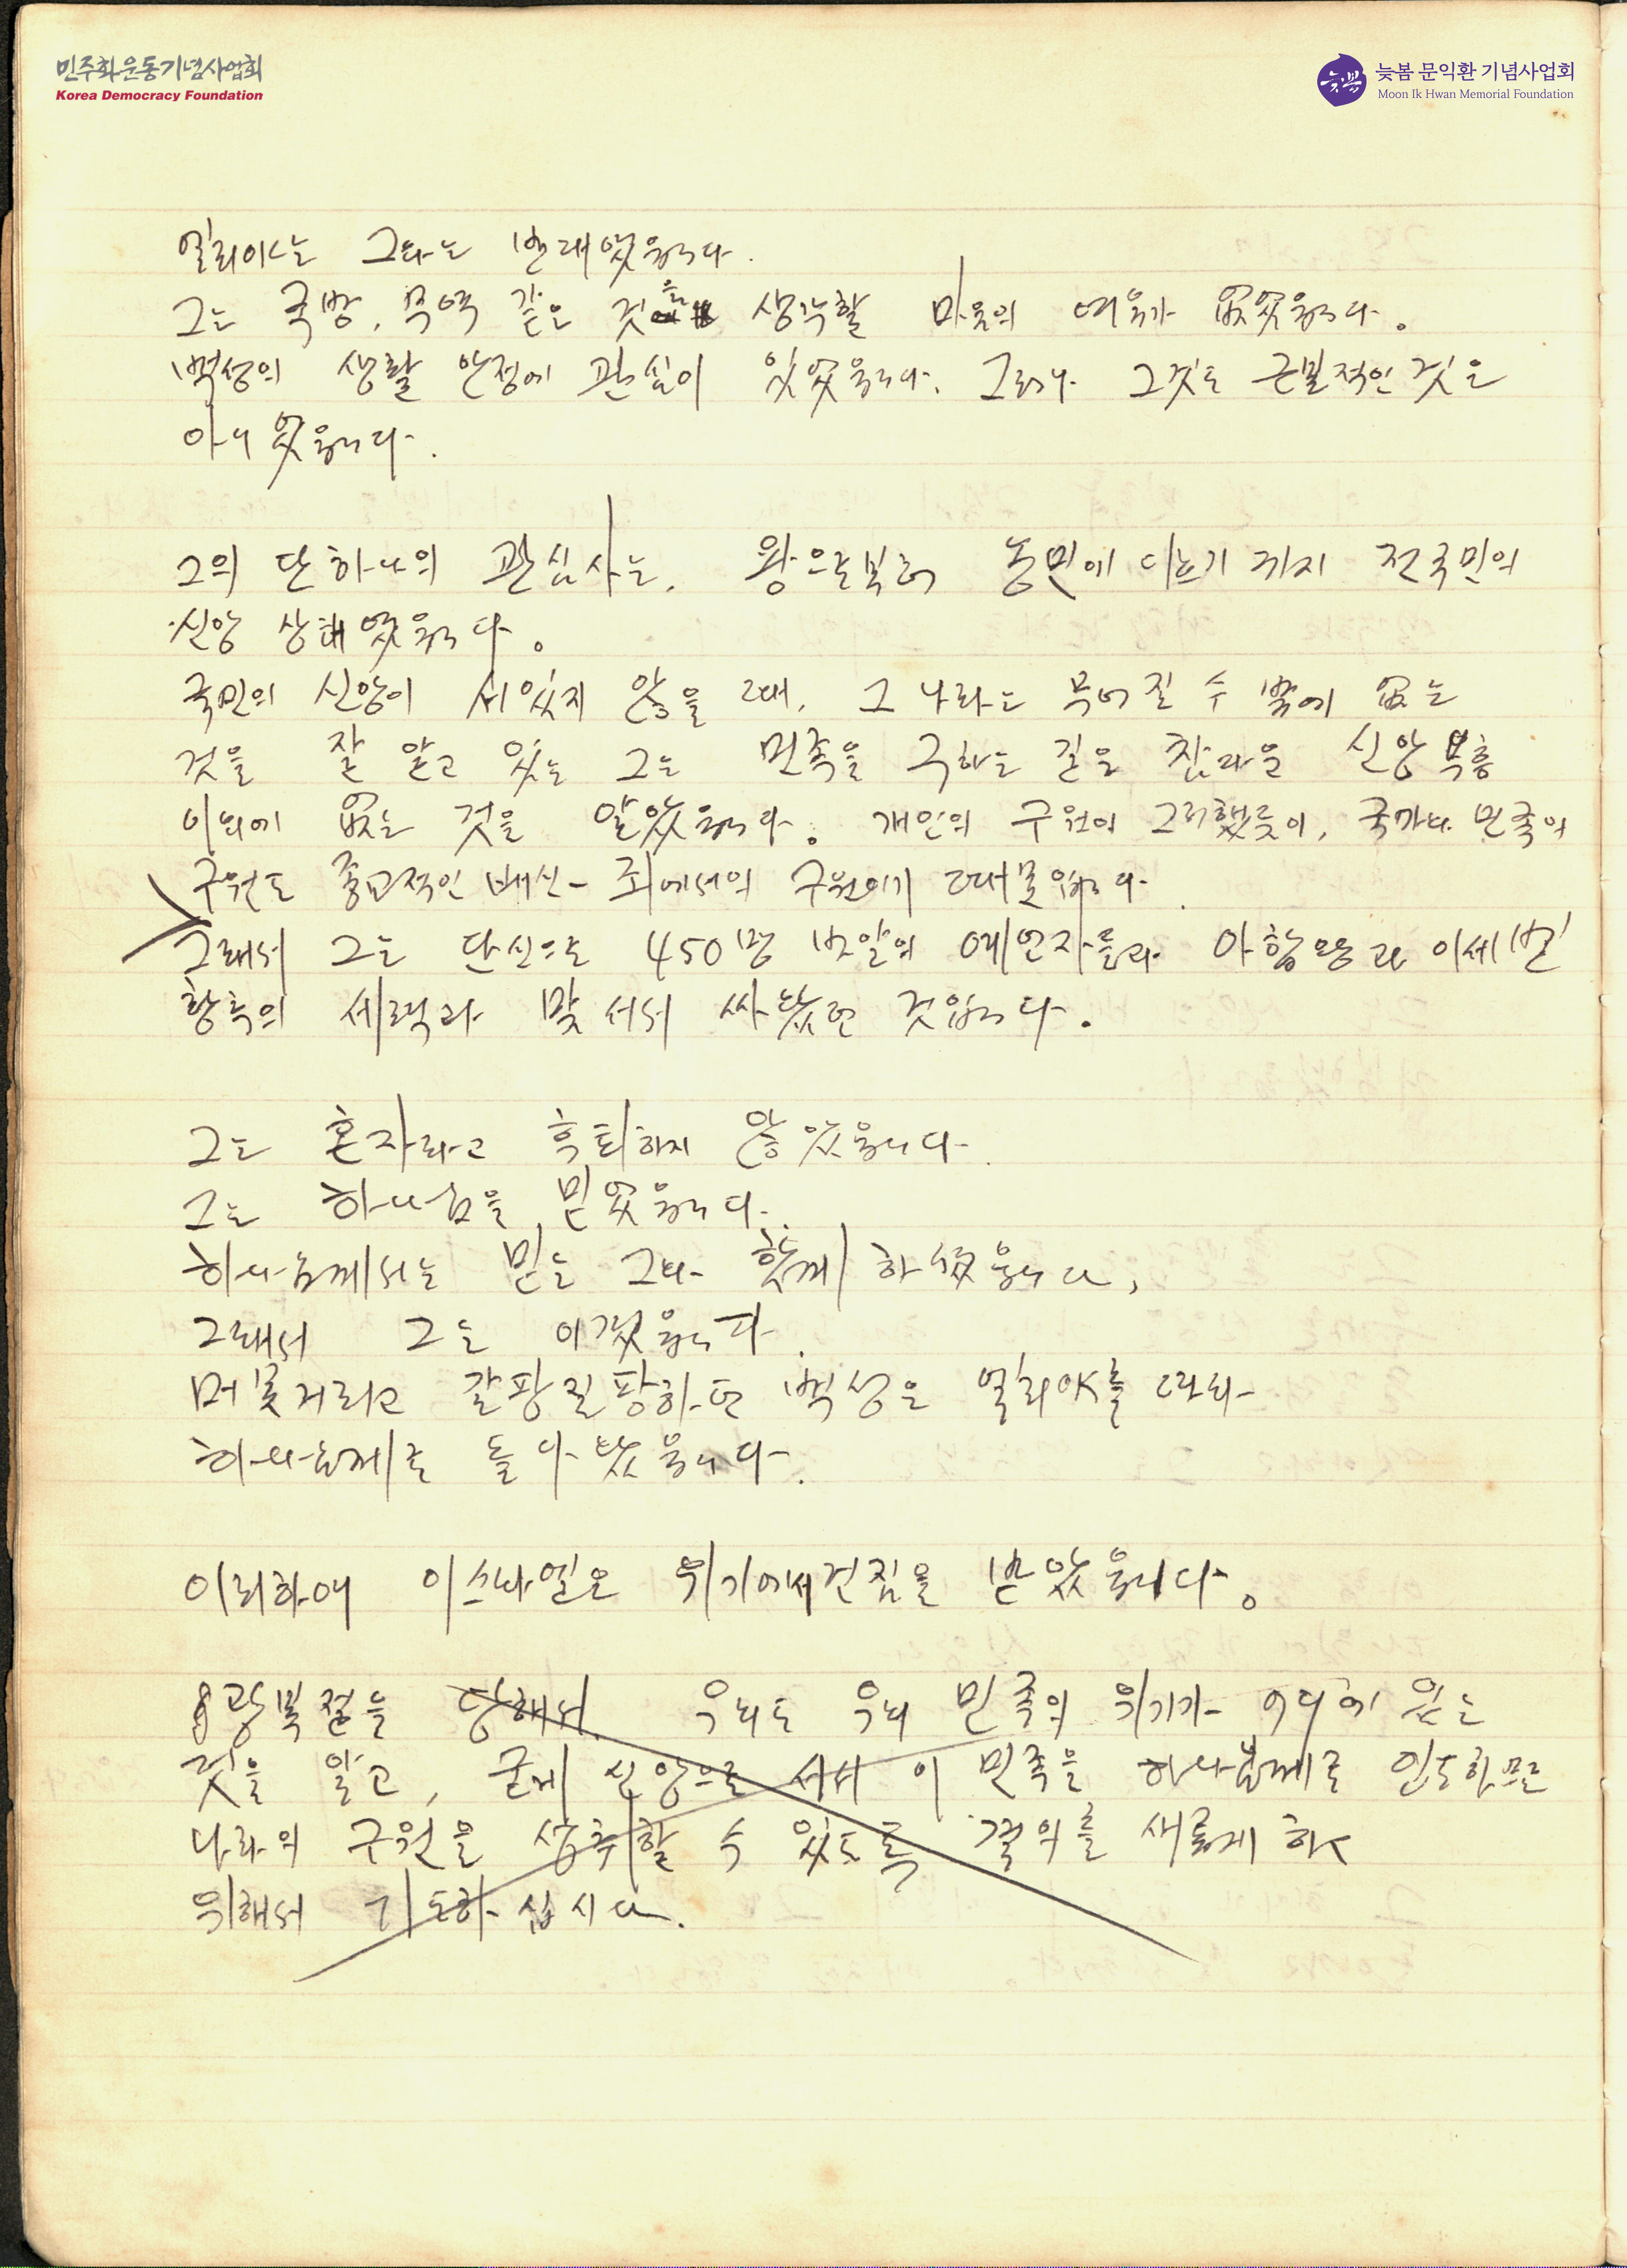 민주화운동기념사업회
Korea Democracy Foundation
늦봄 문익환 기념사업회
Moon Ik Hwan Memorial Foundation
엘리야는 그와는 반대였읍니다.
그는 국방, 무역 같은 것을 생각할 마음의 여유가 없었읍니다.
백성의 생활 안정에 관심이 있었읍니다. 그러나 그것도 근본적인 것은
아니었읍니다.
그의 단 하나의 관심사는, 왕으로부터 농민에 이르기 까지 전국민의
신앙 상태였읍니다.
국민의 신앙이 서 있지 않을 때, 그 나라는 무너질 수 밖에 없는
것을 잘 알고 있는 그는 민족을 구하는 길은 참다운 신앙부흥
이외에 없는 것을 알았읍니다. 개인의 구원이 그러했듯이, 국가나 민족의
구원도 종교적인 배신- 죄에서의 구원이기 때문입니다.
그래서 그는 단신으로 450명 바알의 예언자들과 아합왕과 이세벨
황후의 세력과 맞서서 싸웠던 것입니다.
그는 혼자라고 후퇴하지 않았읍니다.
그는 하나님을 믿었읍니다.
하나님께서는 믿는 그와 함께 하셨읍니다,
그래서 그는 이겼읍니다.
머뭇거리고 갈팡질팡하던 백성은 엘리야를 따라
하나님께로 돌아왔읍니다.
이리하여 이스라엘은 위기에서 건짐을 받았읍니다.
광복절을 당해서 우리도 우리 민족의 위기가 어디에 있는
것을 알고, 굳게 신앙으로 서서 이 민족을 하나님께로 인도하므로
나라의 구원을 성취할 수 있도록 결의를 새롭게 하기
위해서 기도하십시다.